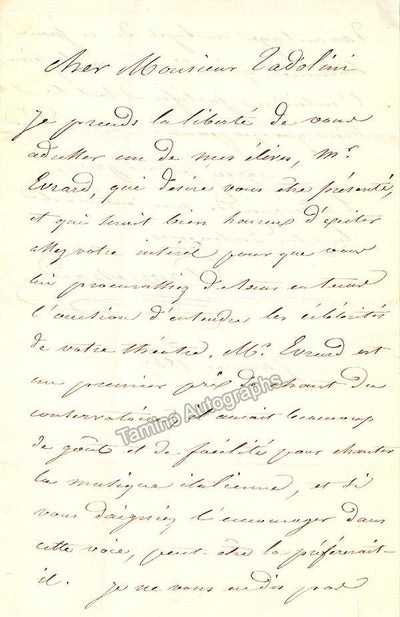 Cher Monsieur Tadolini
Je prends la liberté de vous
adresser un de mes élèves, Mr
Evrard, qui désire vous être présenté,
et qui serait bien heureux d'exciter
assez votre intérêt pour que vous
lui procurassiez de tems en tems
l'occasion d'entendre les célébrités
de votre théâtre. Mr. Evrard est
un premier prix de chant du
conservatoire, il aurait beaucoup
de goût et de facilités pour chanter
la musique italienne, et si
vous daigniez l'encourager dans
cette voie, peut-être la préférerait-
il. Je ne vous en dis pas
Tamino Autographs